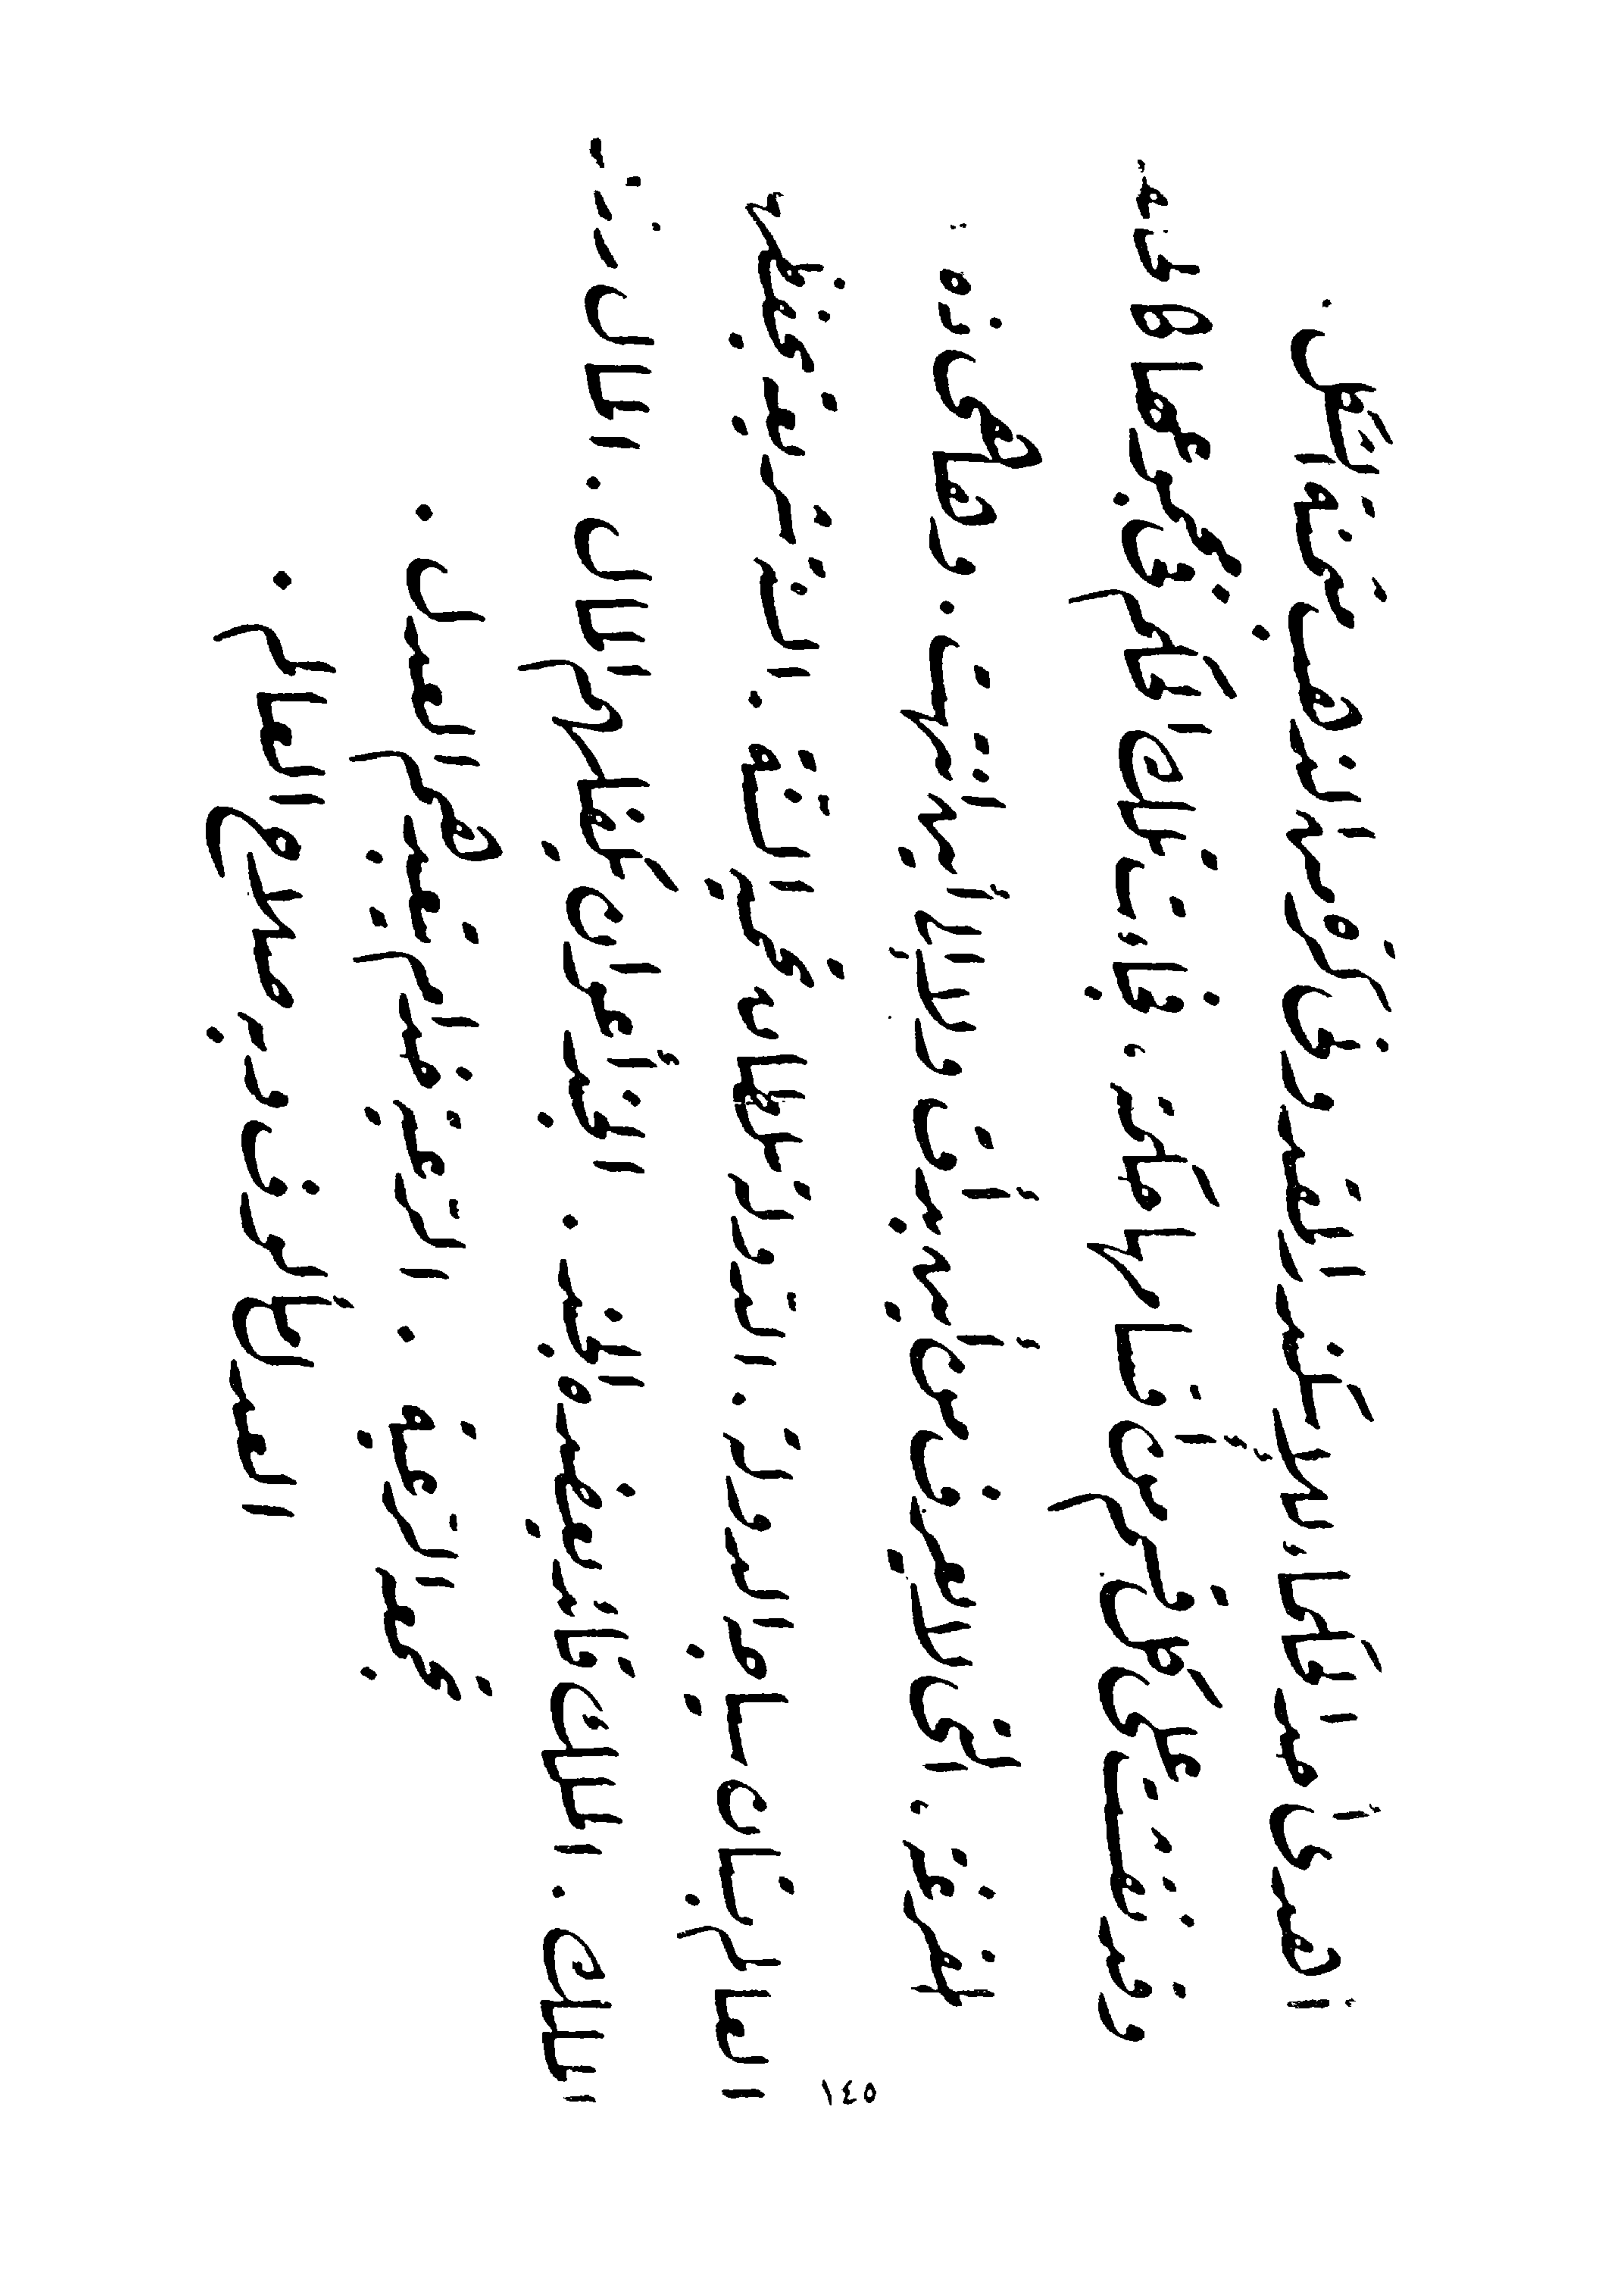 أهدى أحد الحكماء للإسكندر المقدوني كرة من الذهب مثمنة الشكل .
وقد نقشت على كل قسم من أقسامها حكمة ، فجاءت تلك الحكم في مجموعها كالحلقة
المفرغة ، التي لا يعرف من أين بدأت ولا إلى أين انتهت . وها هي ذه :
العالم بستان سياجه الدولة . الدولة سلطان السنة . السنة شريعة يحفظها
الملك . الملك قائد يعضده الجند . الجند أعوان يكفلهم المال . المال رزق
تجمعه الرعية . الرعية خدام يتعبدهم العدل .
العدل مألوف وبه صلاح العالم .
١٤٥